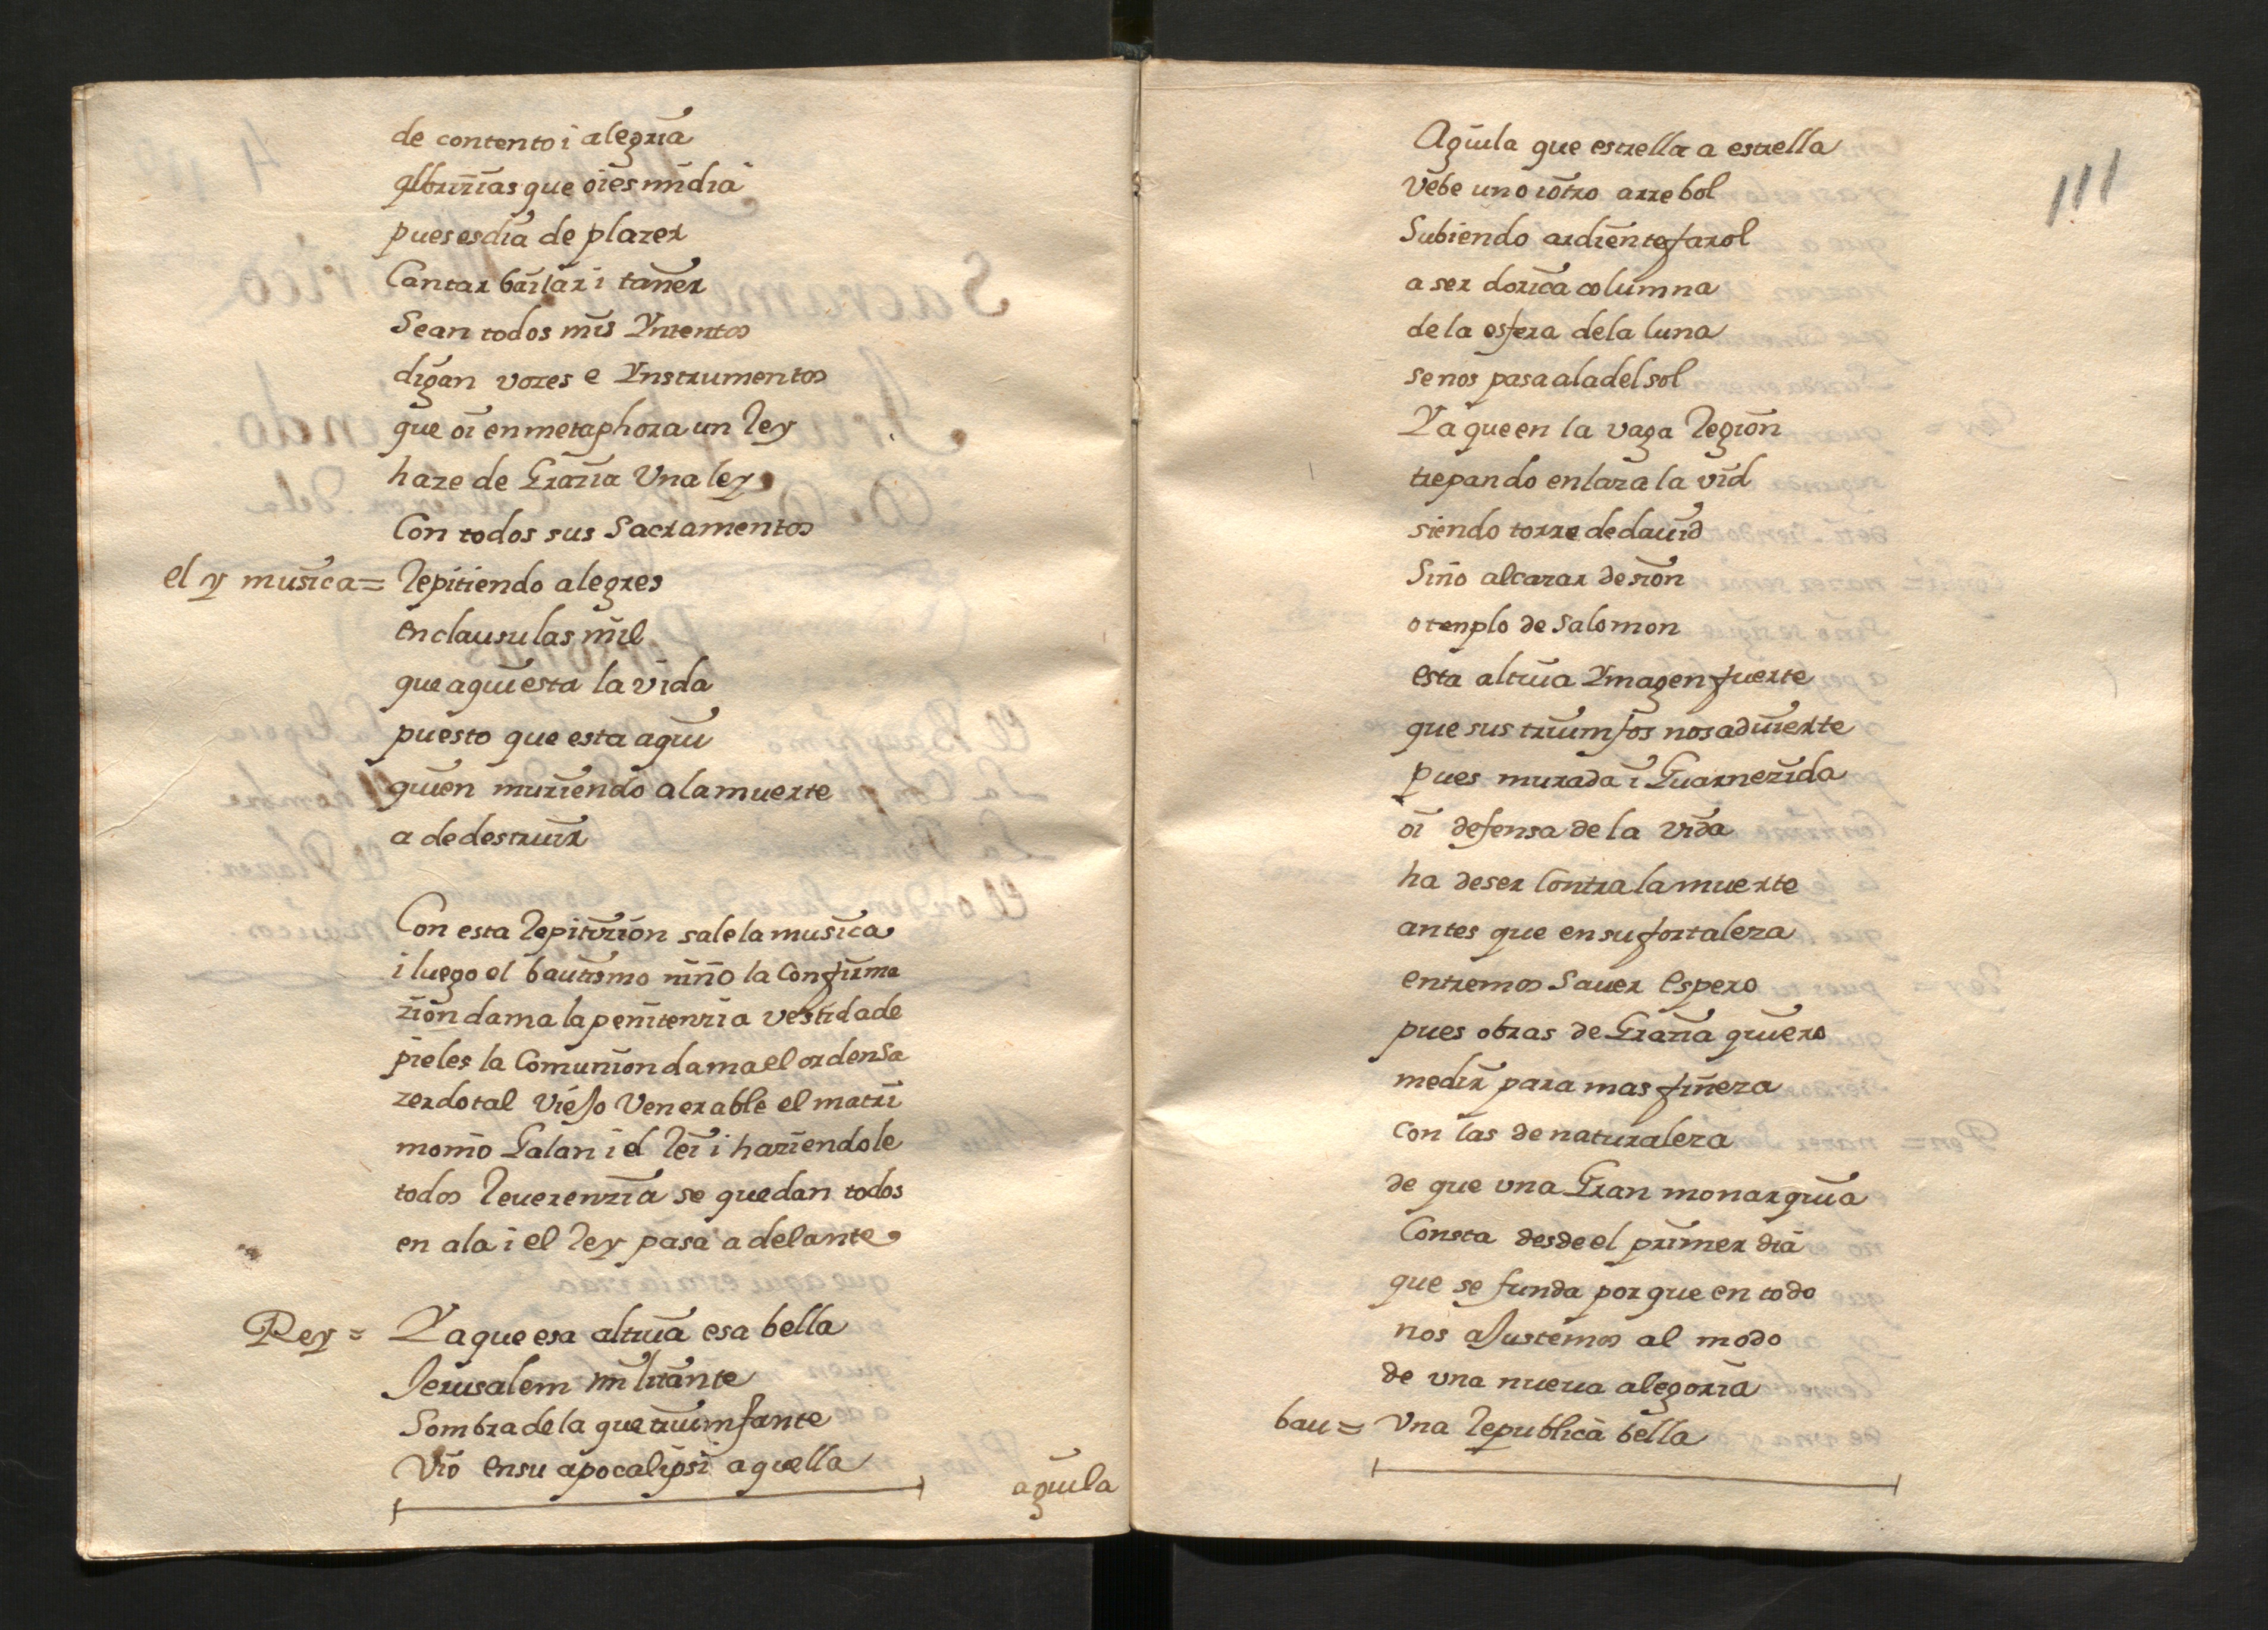 de contento i alegria
albrizias que oi es mi dia
pues es dia de plazer
Cantar bailar i tañer
Sean todos mis Yntentos
digan vozes e Ynstrumentos
que oi en metaphora un Rey
haze de Grazia Una ley
Con todos sus Sacramentos
el y musica = Repitiendo alegres
en clausulas mil
que aqui esta la vida
puesto que esta aqui
quien muriendo a la muerte
a de destruir
Con esta Repitizion sale la musica
i luego el bautismo niño la Confirma
zion dama la penitenzia vestida de
pieles la Comunion dama el orden sa
zerdotal Viejo Venerable el matri
monio Galan i el Rei i haziendole
todos Reuerenzia se quedan todos
en ala i el Rey pasa adelante
Rey = Ya que esa altiua esa bella
Jerusalem militante
Sombra de la que triumfante
Vio en su apocalipsi aquella
aguila
111
Aguila que estrella a estrella
Vebe uno i otro arrebol
Subiendo ardiente farol
a ser dorica columna
de la esfera de la luna
se nos pasa a la del sol
Ya que en la vaga Region
trepando enlaza la vid
siendo torre de dauid
Sino alcazar de sion
o templo de Salomon
esta altiua Ymagen fuerte
que sus triumfos nos aduierte
pues murada i Guarnezida
oi defensa de la vida
ha de ser Contra la muerte
antes que en su fortaleza
entremos Sauer espero
pues obras de Grazia quiero
medir para mas fineza
con las de naturaleza
de que una Gran monarquia
Consta desde el primer dia
que se funda porque en todo
nos ajustemos al modo
de una nueua alegoria
bau = Una Republica bella